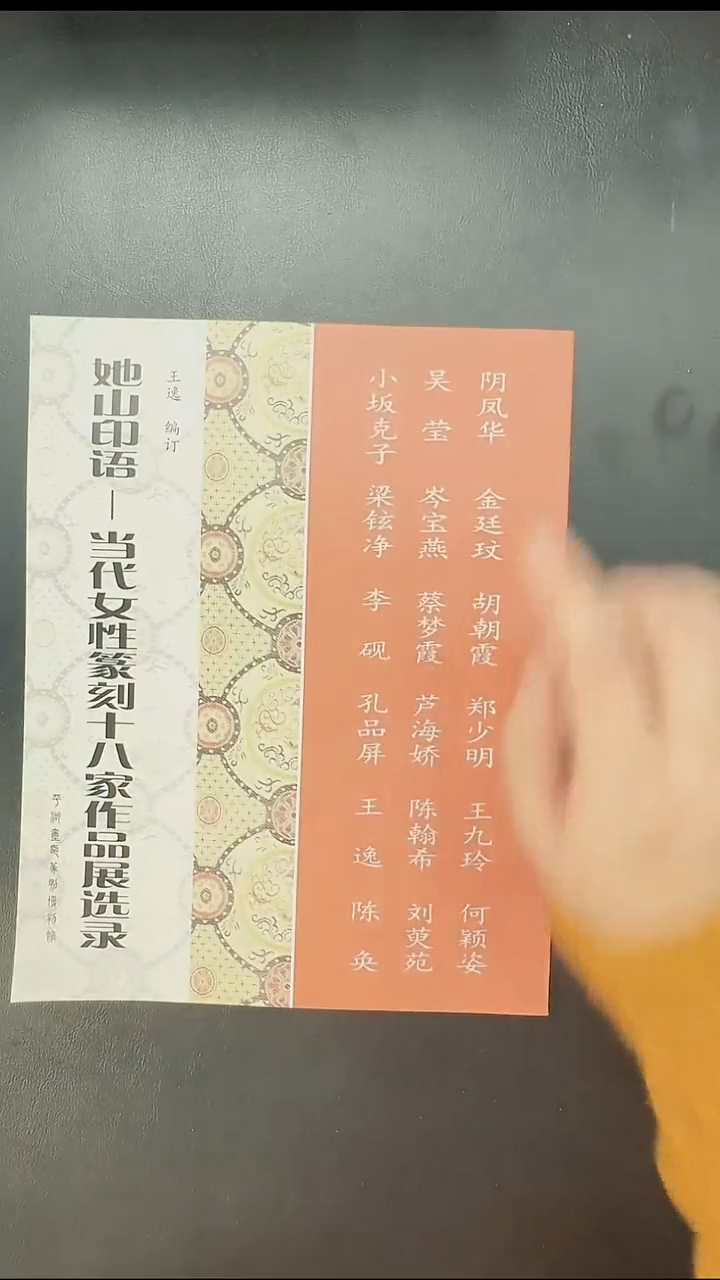 阴凤华 金廷玟 胡朝霞 郑少明 王九玲 何颖姿
吴莹 岑宝燕 蔡梦霞 芦海娇 陈翰希 刘萸苑
小坂克子 梁铉净 李砚 孔品屏 王逸 陈奂
王逸 编订
她山印语—当代女性篆刻十八家作品展选录